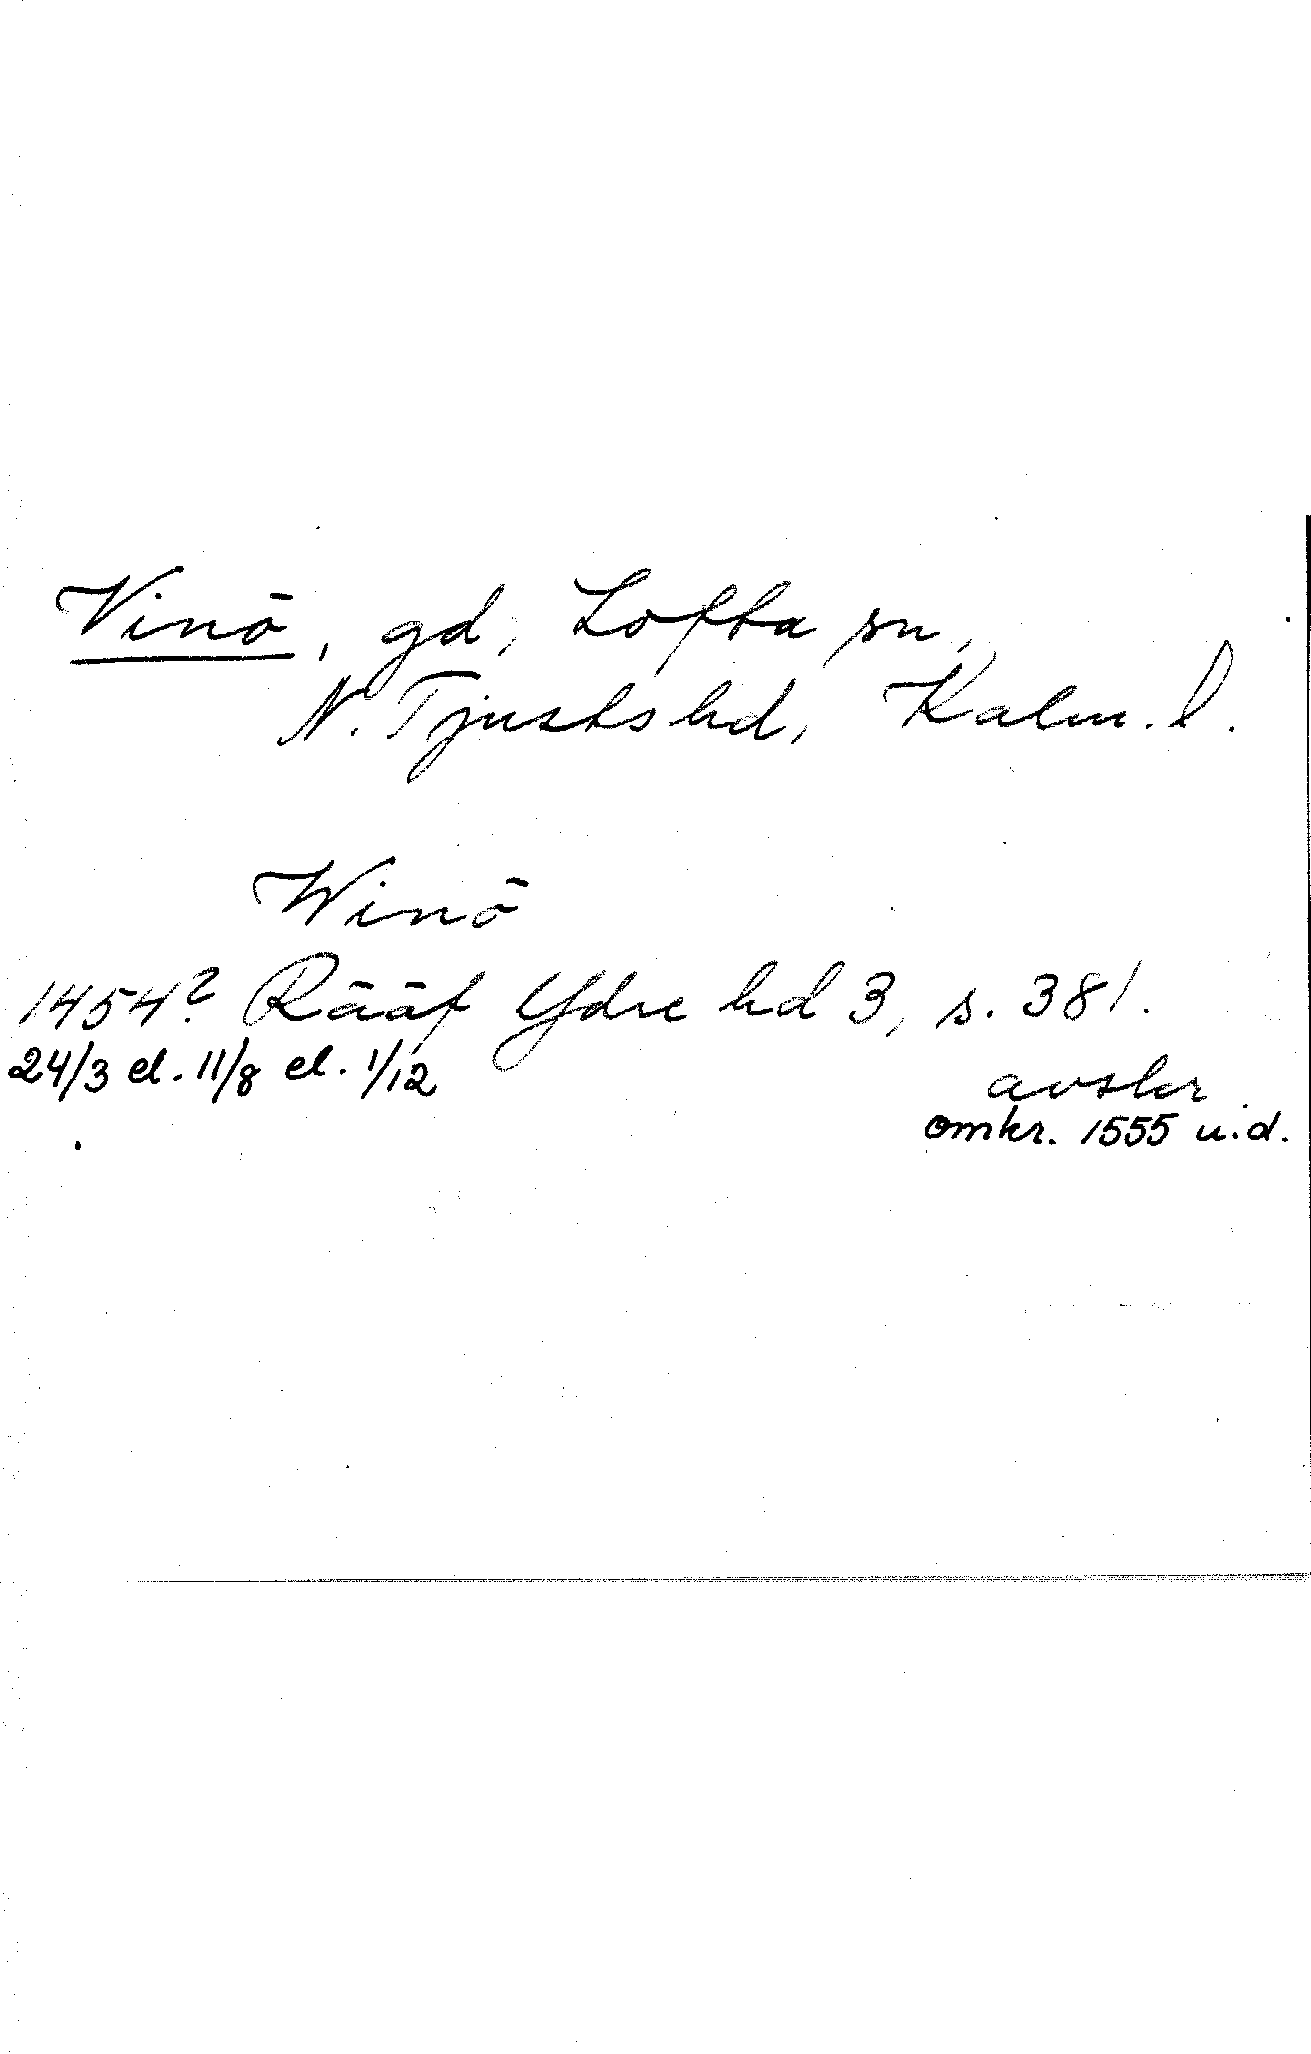 Vinö, gd, Lofta sn,
N. Tjusts hd, Kalm. l.
Winö
1454? Rääf Ydre hd 3, s. 381.
24/3 el. 11/8 el. 1/12
avskr
omkr. 1555 u.d.